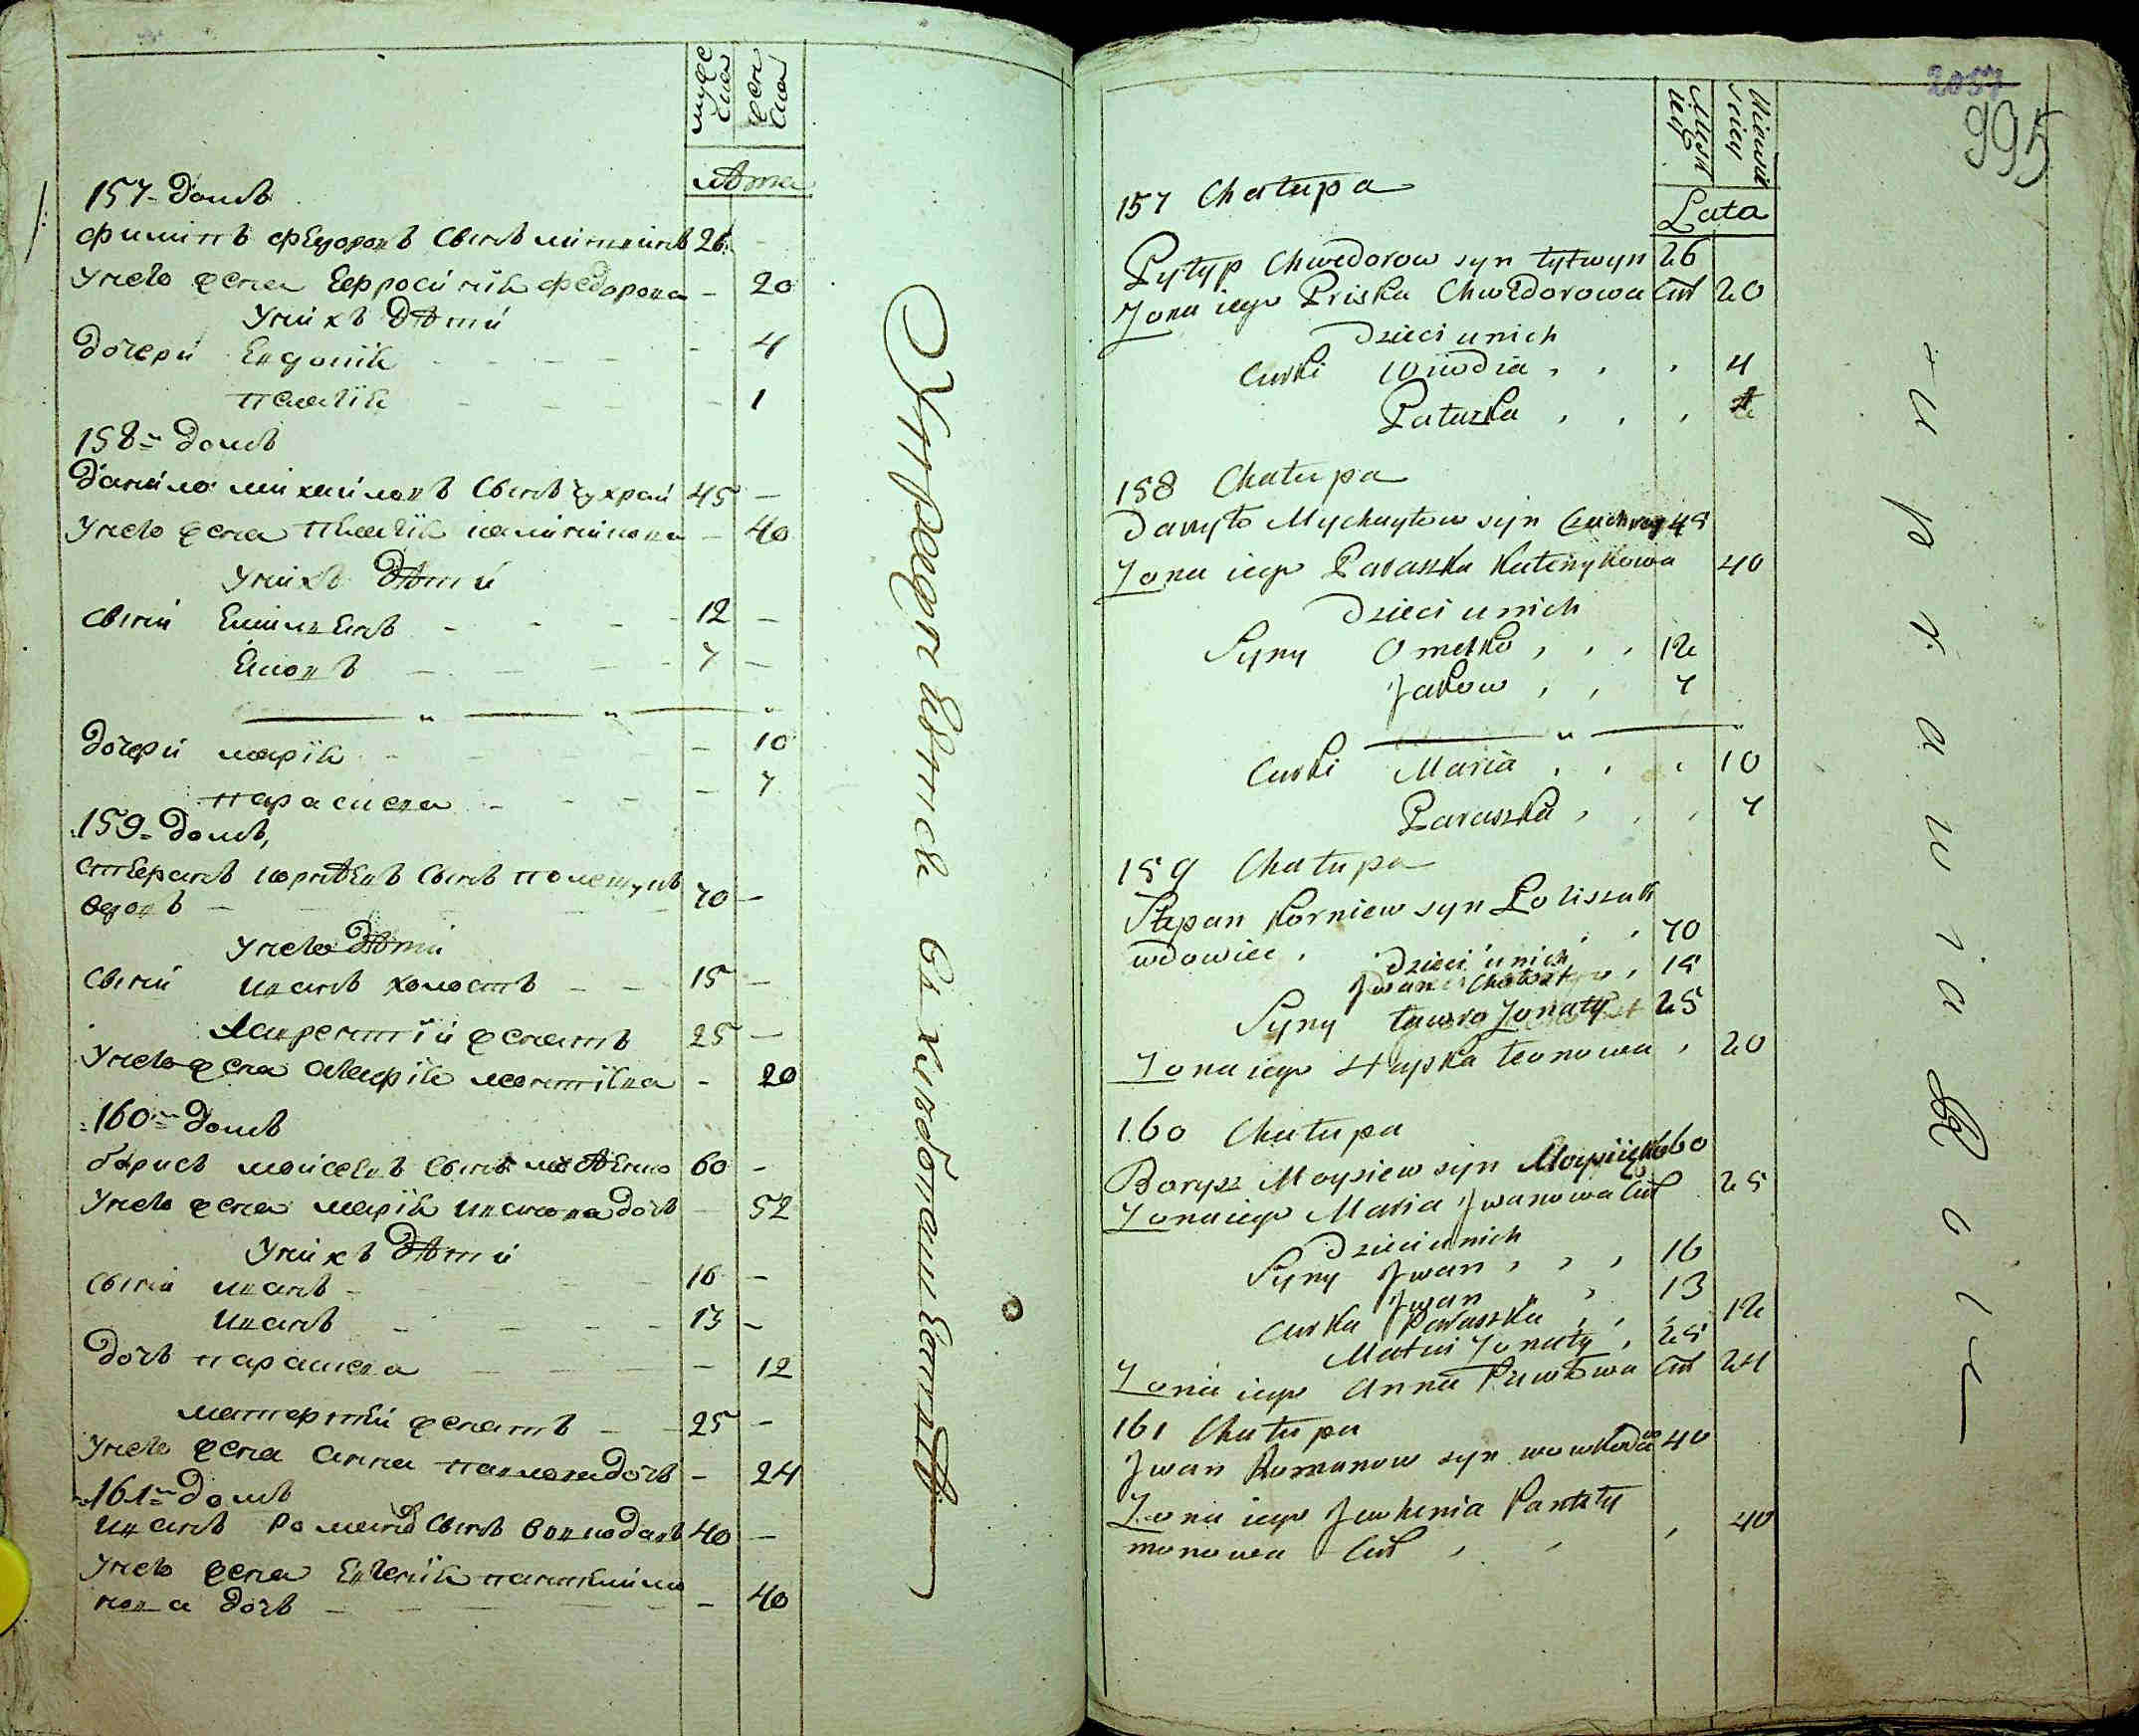 мужеска женска
лѣта
157 домъ
Филипъ Федоровъ сынъ литвинъ 26
У него жена Евфросинія Федорова – 20
У нихъ дѣти
дочери Евдокія – 4
Пелагія – 1
158 домъ
Данило Михайловъ сынъ Чухрай 45 –
У него жена Пелагія Калиникова – 40
У нихъ дѣти
сыны Емилѣанъ 12 –
Яковъ 7 –
дочери Марія – 10
Параскева – 7
159 домъ
Стефанъ Корнѣевъ сынъ Полещукъ
вдовъ – 70 –
У него дѣти
сыны Иванъ холостъ 15 –
Лаврентій женатъ 25 –
У него жена Агафія Леонтіева – 20
160 домъ
Борисъ Мойсеевъ сынъ 60 –
У него жена Марія Иванова дочь – 52
У нихъ дѣти
сыны Иванъ 16 –
Иванъ 13 –
дочь Параскева – 12
женатъ 25 –
У него жена Анна Павлова дочь – 24
161 домъ
Иванъ Романовъ сынъ Вовкодавъ 40 –
У него жена Евгенія Пантелимо
нова дочь – 40
Учредителнся въ
2057
995
Męsk Niewieś
Lata
157 Chałupa
Pyłyp Chwedorow syn Łytwyn 26
Żona iego Priska Chwedorowa Cur 20
Dzieci u nich
Curki Wiwdia , , , 4
Pałazka , , ,
158 Chałupa
Danyło Mychayłow syn Czuchray 45
Żona iego Paraszka Kalenykowa 40
Dzieci u nich
Syny Omelko , , , 12
Jakow , , 7
Curki Maria , , , 10
Paraszka , , , 7
159 Chałupa
Stepan Korniew syn Poliszuk
wdowiec , , , 70
Dzieci u nich
Iwan , 15
Syny Ławro Żonaty 25
Żona iego Hapka Leonowa , 20
160 Chałupa
Borysz Moysiew syn 60
Żona iego Maria Iwanowa Cur 25
Dzieci u nich
Syny Iwan , , , 16
Iwan , 13
Curka Paraszka , , , 12
Matwi Żonaty , 25
Żona iego Anna Pawłowa Cur 24
161 Chałupa
Iwan Romanow syn 40
Żona iego Jewhenia Pantely
monowa Cur , , , 40